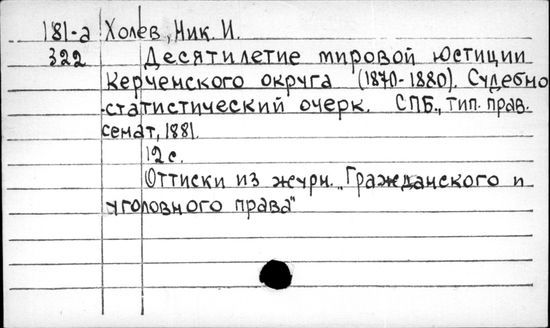 181-а Холев, Ник. И.
322 Десятилетие мировой юстиции
Керченского округа (1870-1880). Судебно
-статистический очерк. СПБ., тип. прав.
сенат, 1881.
12 с.
Оттиски из журн. „Гражданского и
уголовного права"